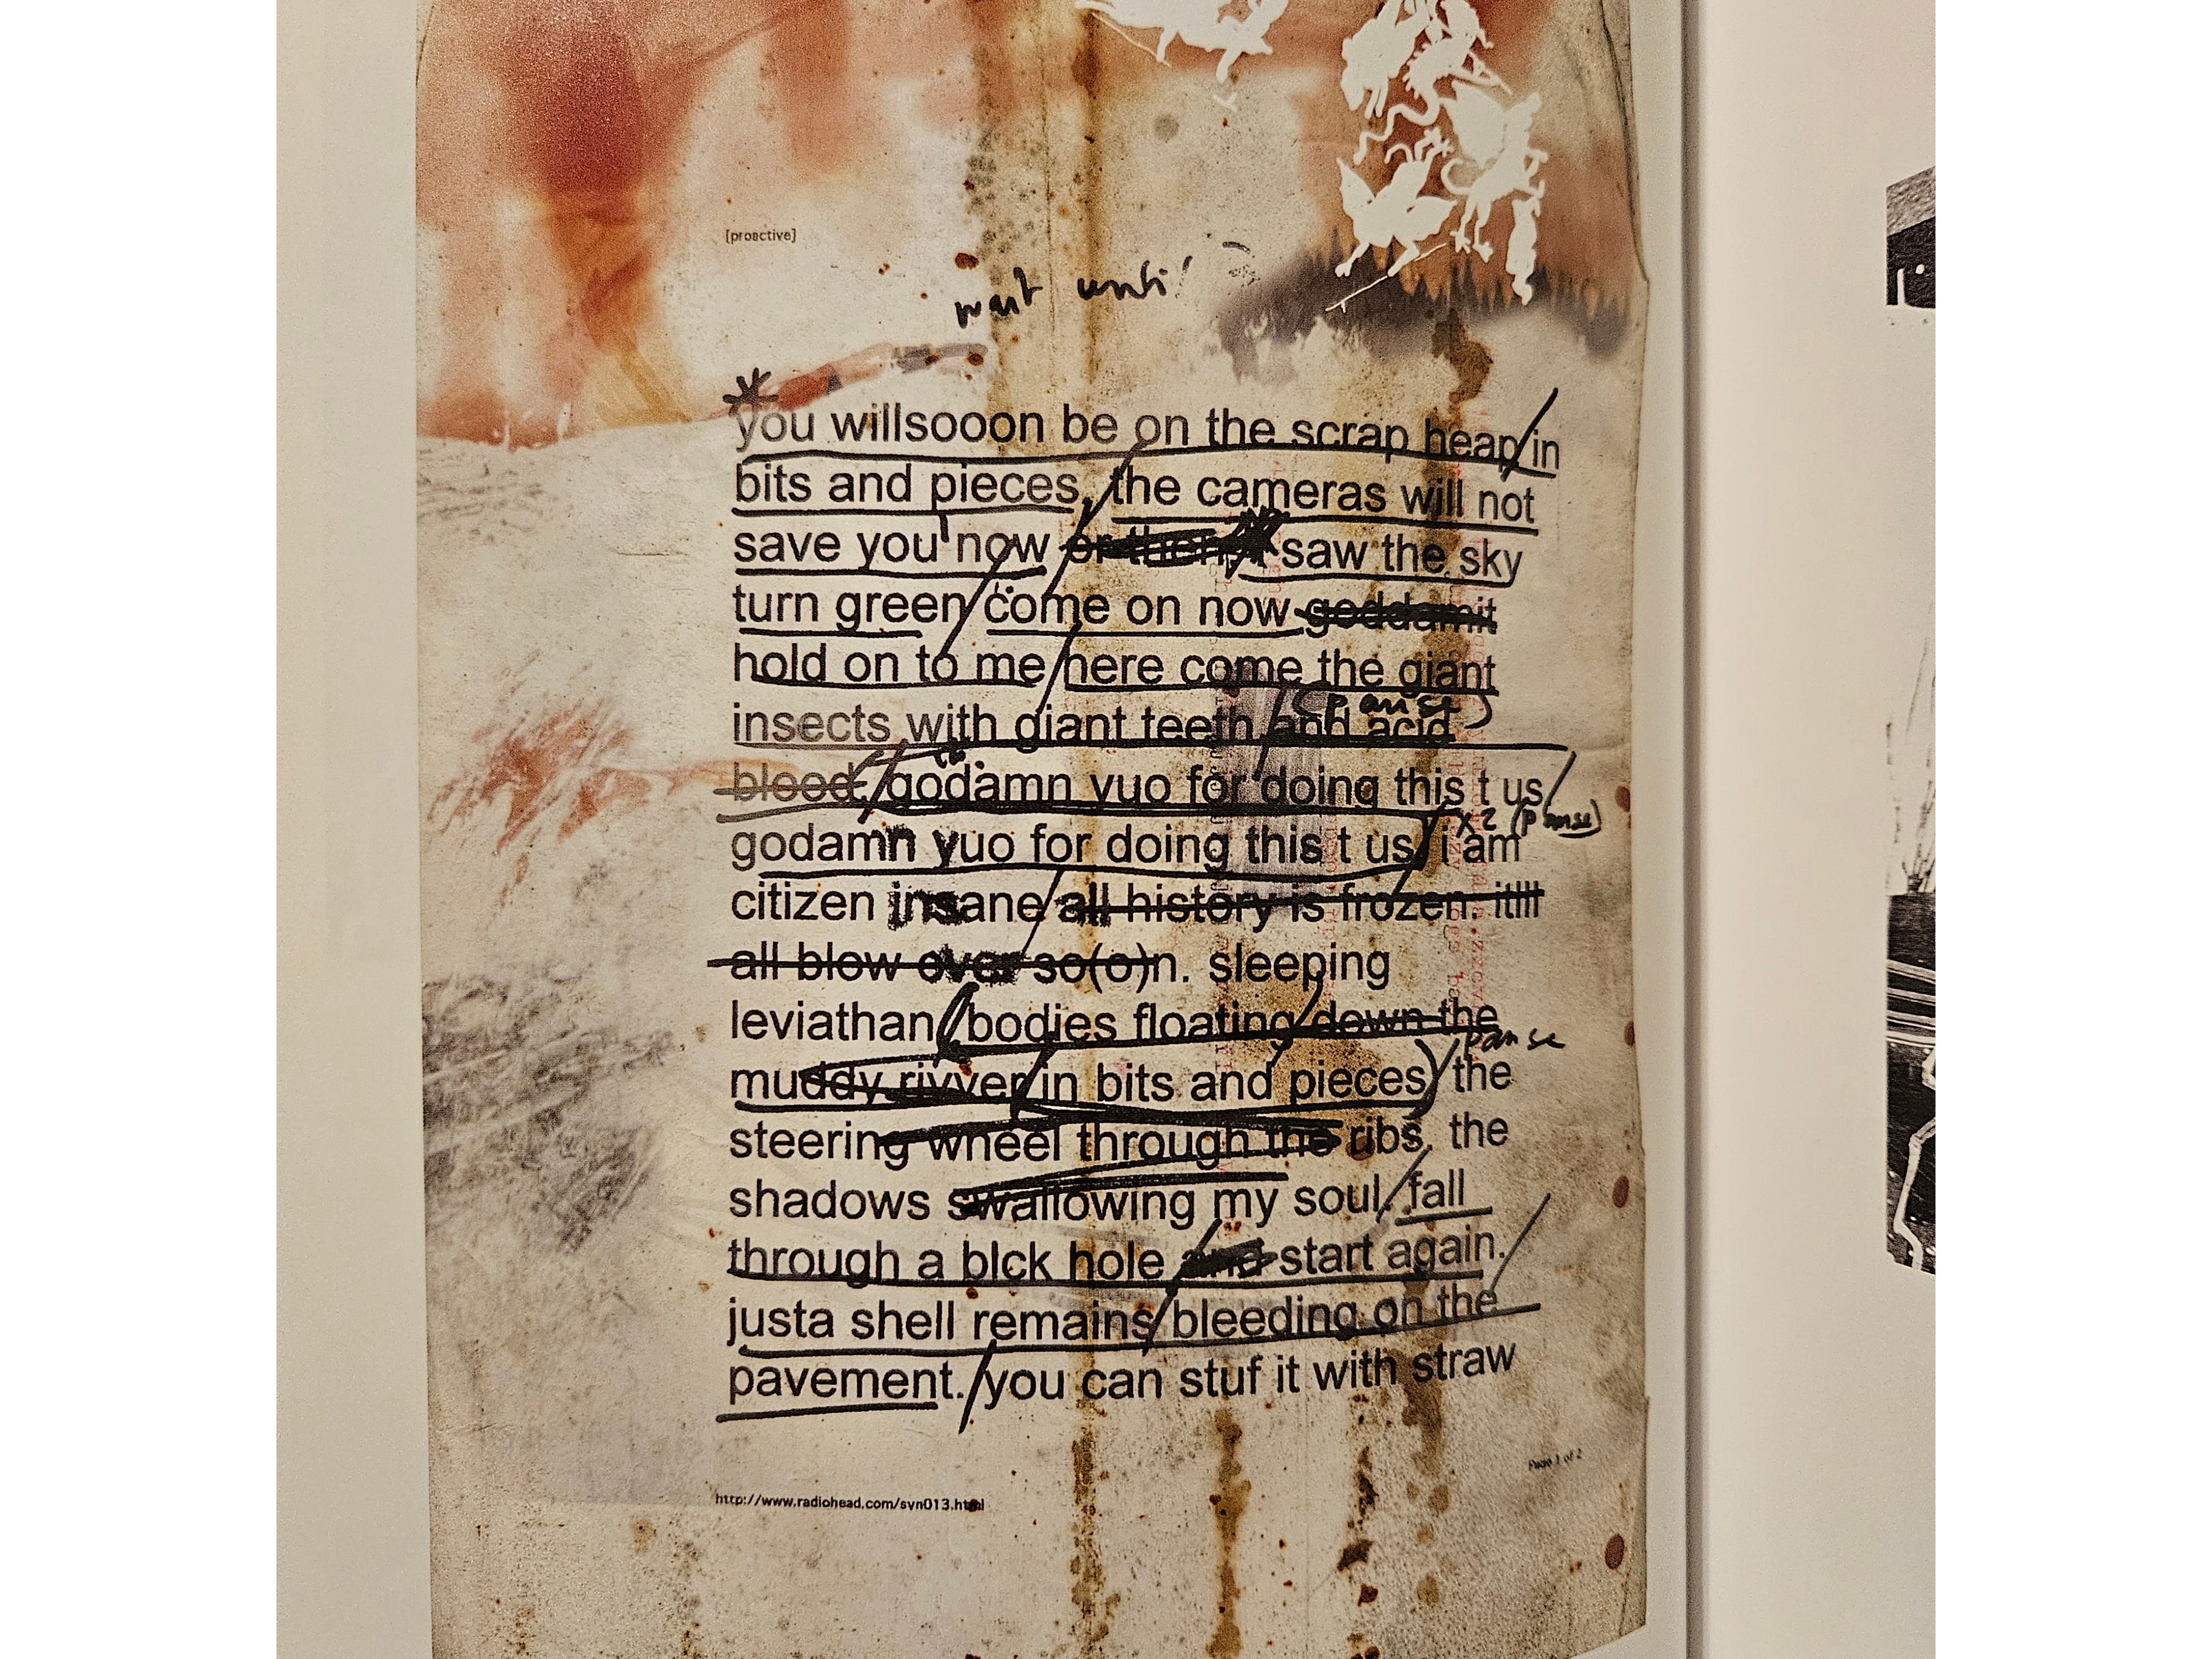 [proactive]
wait until
you willsooon be on the scrap heap/in
bits and pieces, /the cameras will not
save you now or then, saw the sky
turn green/come on now goddamit
hold on to me/here come the giant
(pause)
insects with giant teeth/and acid
blood./godamn yuo for doing this t us/
x2 (pause)
godamn yuo for doing this t us/i am
citizen insane/all history is frozen. itlll
all blow over so(o)n. sleeping
leviathan/bodies floating/down the
pause
muddy rivver/in bits and pieces) the
steering wheel through the ribs. the
shadows swallowing my soul/fall
through a blck hole and start again./
justa shell remains/bleeding on the
pavement./you can stuf it with straw
Page 1 of 2
http://www.radiohead.com/syn013.html